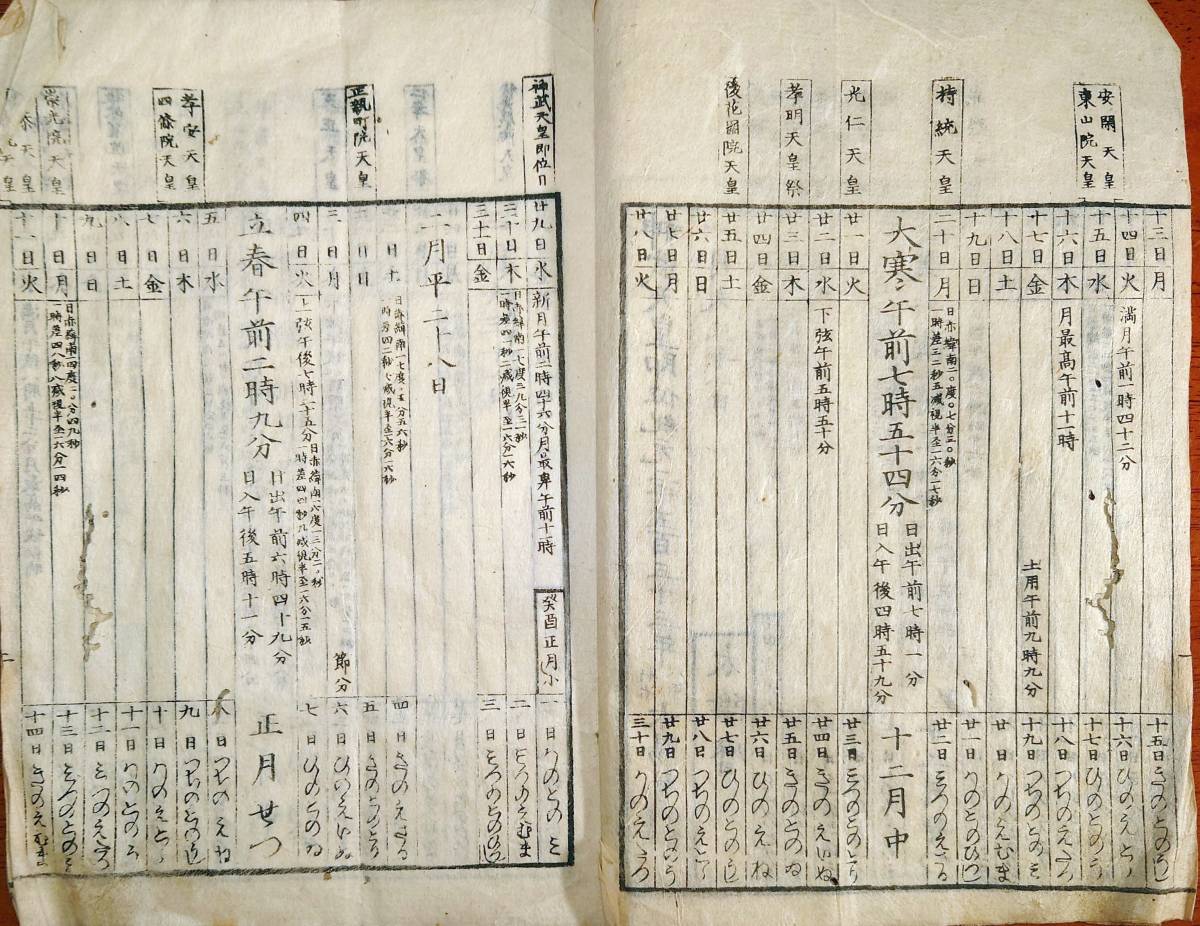 安閑天皇
東山院天皇
持統天皇
光仁天皇
孝明天皇祭
後花園院天皇
十三日月
十五日きのとのうし
十四日火
満月午前一時四十二分
十六日ひのえとら
十五日水
十七日ひのとのう
十六日木
月最高午前十一時
十八日つちのえたつ
十七日金
土用午前九時九分
十九日つちのとのみ
十八日土
廿日かのえむま
十九日日
廿一日かのとのひつし
二十日月
日赤緯南二〇度〇七分三〇秒
一時差三二秒五減視半至一六分一七秒
廿二日みつのえさる
大寒午前七時五十四分
日出午前七時一分
日入午後四時五十九分
十二月中
廿一日火
廿三日みつのとのとり
廿二日水
下弦午前五時五十分
廿四日きのえいぬ
廿三日木
廿五日きのとのゐ
廿四日金
廿六日ひのえね
廿五日土
廿七日ひのとのうし
廿六日日
廿八日つちのえとら
廿七日月
廿九日つちのとのう
廿八日火
三十日かのえたつ
神武天皇即位日
正親町院天皇
孝安天皇
四條院天皇
崇光院天皇
廿九日水
新月午前二時四十六分月最卑午前十一時
癸酉正月小
一日かのとのみ
三十日木
日赤緯南一七度三九分三一秒
二日みつのえむま
三十一日金
三日みつのとのひつし
二月平二十八日
一日土
四日きのえさる
二日日
五日きのとのとり
三日月
節分
六日ひのえいぬ
四日火
上弦午後七時二十五分
七日ひのとのゐ
立春午前二時九分
日出午前六時四十九分
日入午後五時十一分
正月せつ
五日水
八日つちのえね
六日木
九日つちのとのうし
七日金
十日かのえとら
八日土
十一日かのとのう
九日日
十二日みつのえたつ
十日月
日赤緯南一四度二〇分四九秒
一時差四八秒八減視半至一六分一四秒
十三日みつのとのみ
十一日火
十四日きのえむま